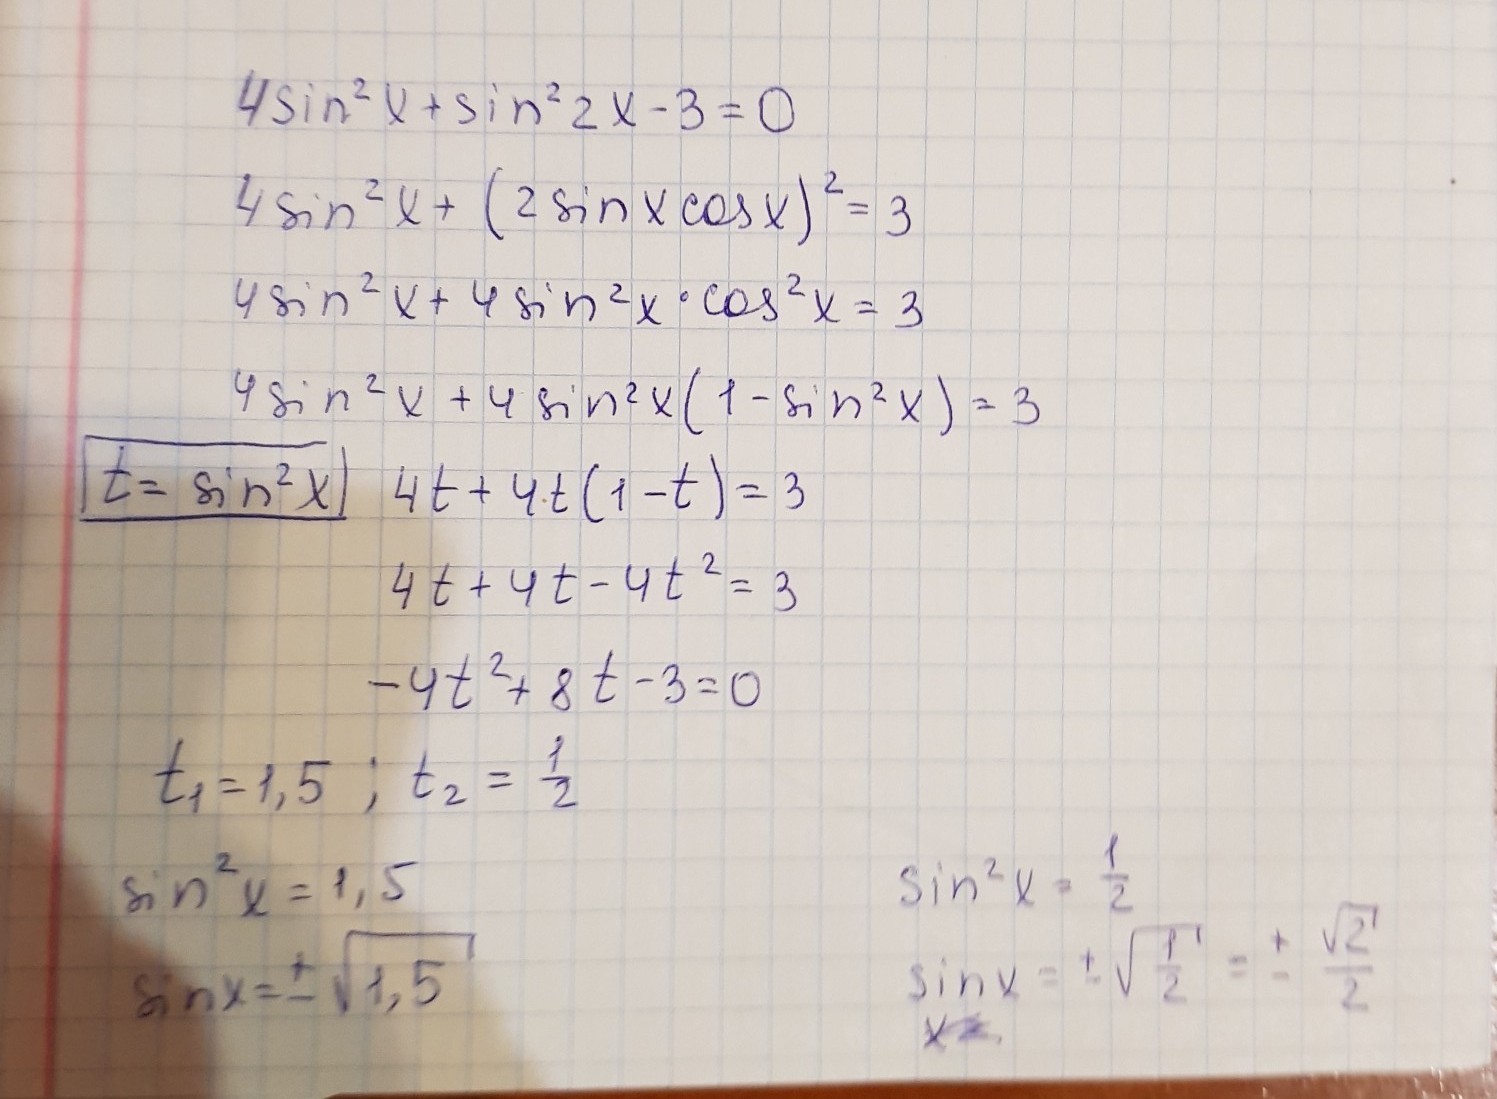 4sin²x+sin²2x-3=0
4sin²x+(2sinxcosx)²=3
4sin²x+4sin²x·cos²x=3
4sin²x+4sin²x(1-sin²x)=3
t=sin²x 4t+4·t(1-t)=3
4t+4t-4t²=3
-4t²+8t-3=0
t₁=1,5 ; t₂=1/2
sin²x=1,5 sin²x=1/2
sinx=±√1,5 sinx=±√(1/2)=±√2/2
x